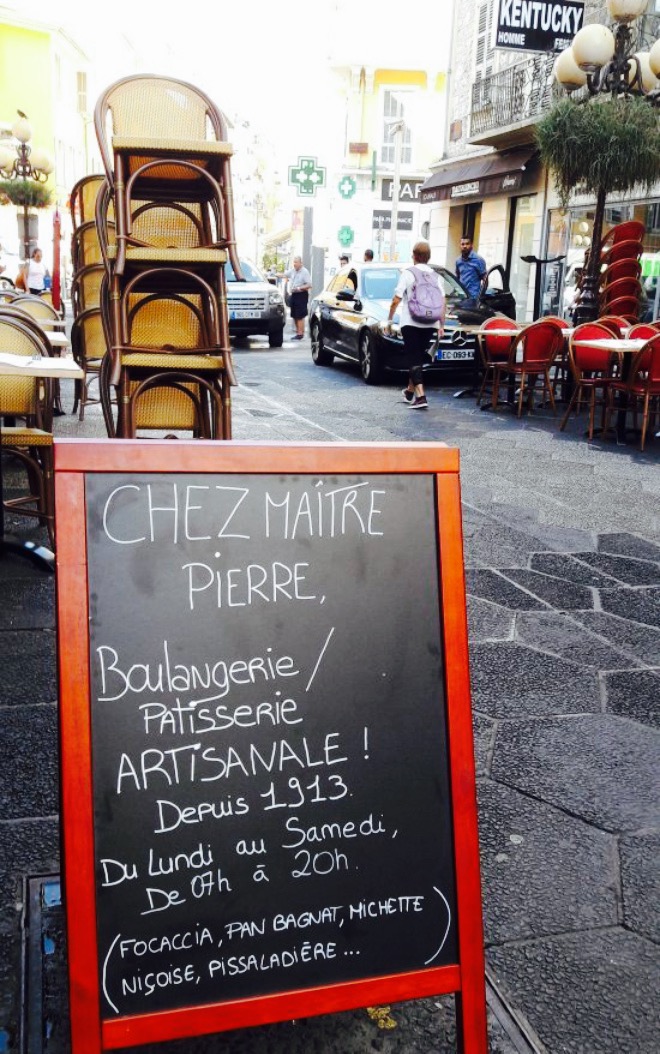 KENTUCKY
HOMME
PAR
EC-093-K
CHEZ MAÎTRE
PiERRE,
Boulangerie /
PATisserie
ARTiSANALE !
Depuis 1913.
Du Lundi au Samedi,
De 07h à 20h.
(FOCACCiA, PAN BAGNAT, MiCHETTE
NiÇOiSE, PiSSALADiÈRE...)